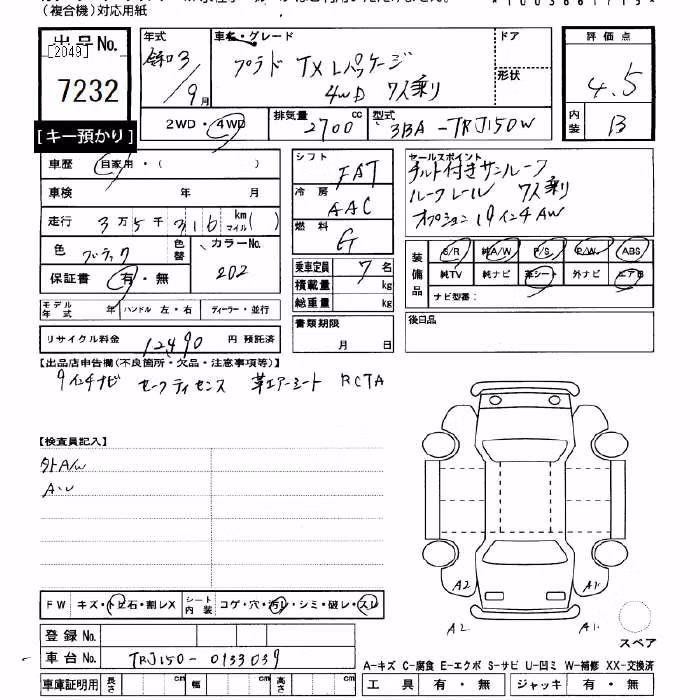 (複合機)対応用紙
出品No. [2049] 7232
[キー預かり]
年式 令和3/9月
車名・グレード プラド TX Lパッケージ 4WD 7人乗り
ドア
形状
評価点 4.5
内装 B
2WD・4WD
排気量 2700 cc
型式 3BA-TRJ150W
車歴 自家用・( )
車検 年 月
走行 3万5千316 km マイル( )
色 ブラック 色替 カラーNo. 202
保証書 有・無
モデル年式 年 ハンドル 左・右 ディーラー・並行
リサイクル料金 12490 円 預託済
シフト FAT
冷房 AAC
燃料 G
乗車定員 7名
積載量 kg
総重量 kg
書類期限 月 日
セールスポイント
チルト付きサンルーフ
ルーフレール 7人乗り
オプション19インチAW
装備品 S/R 純A/W P/S P/W ABS
純TV 純ナビ 革シート 外ナビ エアB
ナビ型番:
後日品
【出品店申告欄(不良箇所・欠品・注意事項等)】
9インチナビ セーフティセンス 革エアーシート RCTA
【検査員記入】
外A/W
A・U
FW キズ・トビ石・割レX シート内装 コゲ・穴・汚レ・シミ・破レ・スレ
登録No.
車台No. TRJ150-0133039
車庫証明用 長さ cm 幅 cm 高さ cm
A2 A1
A2 A1
スペア
A-キズ C-腐食 E-エクボ S-サビ U-凹ミ W-補修 XX-交換済
工具 有・無 ジャッキ 有・無